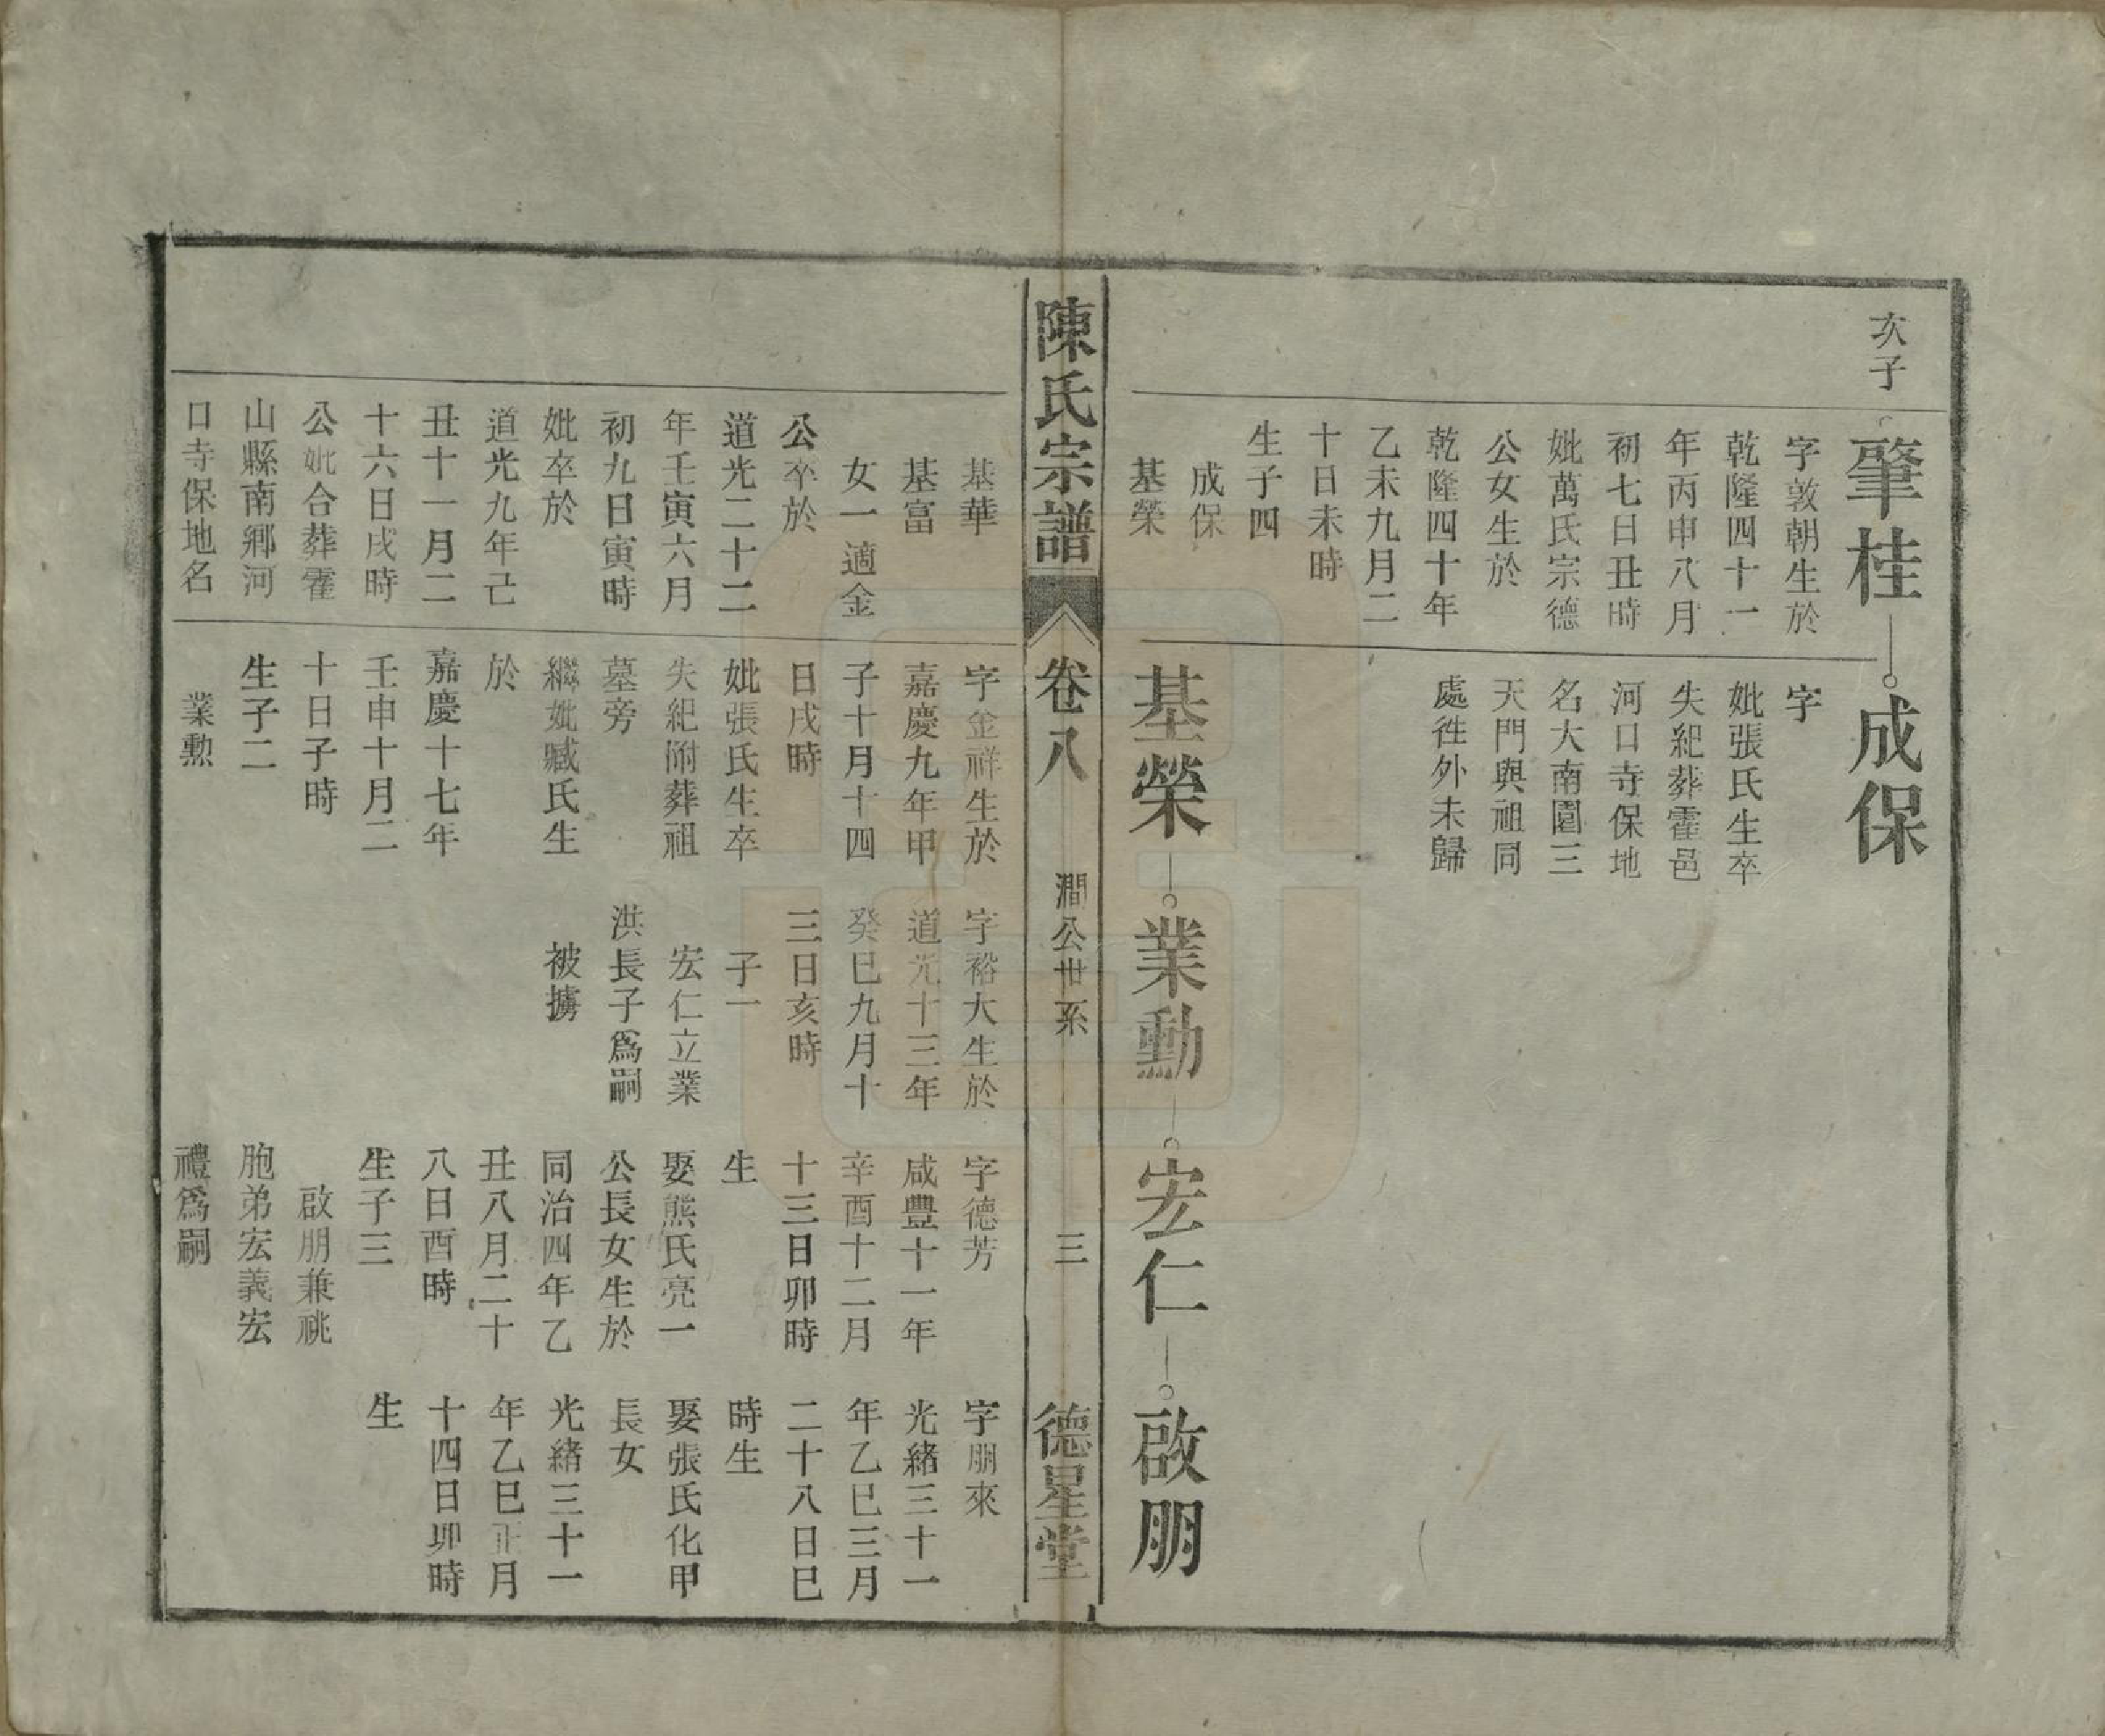 次子
肇桂
成保
字敦朝生於
乾隆四十一
年丙申八月
初七日丑時
妣萬氏宗德
公女生於
乾隆四十年
乙未九月二
十日未時
生子四
成保
基榮
字
妣張氏生卒
失紀葬霍邑
河口寺保地
名大南園三
天門與祖同
處徃外未歸
基榮
業勳
宏仁
啟朋
陳氏宗譜
卷八
澗公世系
三
德星堂
基華
基富
女一適金
公卒於
道光二十二
年壬寅六月
初九日寅時
妣卒於
道光九年己
丑十一月二
十六日戌時
公妣合葬霍
山縣南鄉河
口寺保地名
字金祥生於
嘉慶九年甲
子十月十四
日戌時
妣張氏生卒
失紀附葬祖
墓旁
繼妣臧氏生
於
嘉慶十七年
壬申十月二
十日子時
生子二
業勲
字裕大生於
道光十三年
癸巳九月十
三日亥時
子一
宏仁立業
洪長子爲嗣
被擄
字德芳
咸豐十一年
辛酉十二月
十三日卯時
生
娶熊氏亮一
公長女生於
同治四年乙
丑八月二十
八日酉時
生子三
啟朋兼祧
胞弟宏義宏
禮爲嗣
字朋來
光緒三十一
年乙巳三月
二十八日巳
時生
娶張氏化甲
長女
光緒三十一
年乙巳正月
十四日卯時
生